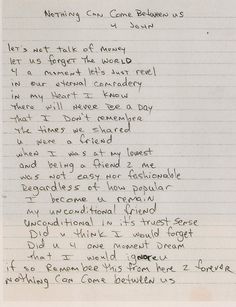 Nothing Can Come Between us
4 John
let's not talk of money
let us forget the world
4 a moment let's just revel
in our eternal comradery
in my Heart I know
there will never be a day
that I Don't remember
the times we shared
u were a friend
when I was at my lowest
and being a friend 2 me
was not easy nor fashionable
Regardless of how popular
I become u remain
my unconditional friend
unconditional in it's truest sense
Did u think I would forget
Did u 4 one moment dream
that I would ignore u
if so Remember this from here 2 forever
Nothing Can Come between us